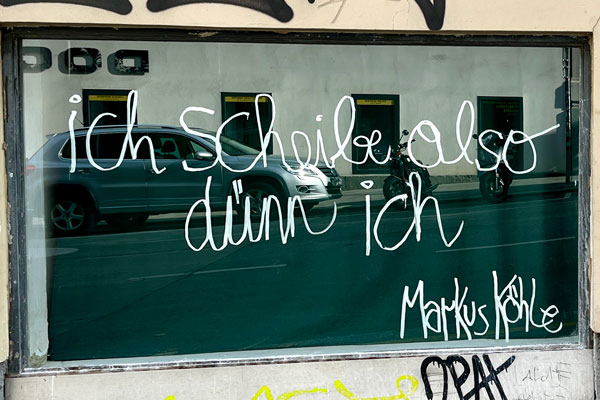 ich scheibe also
dünn ich
Markus Köhle
OPAT